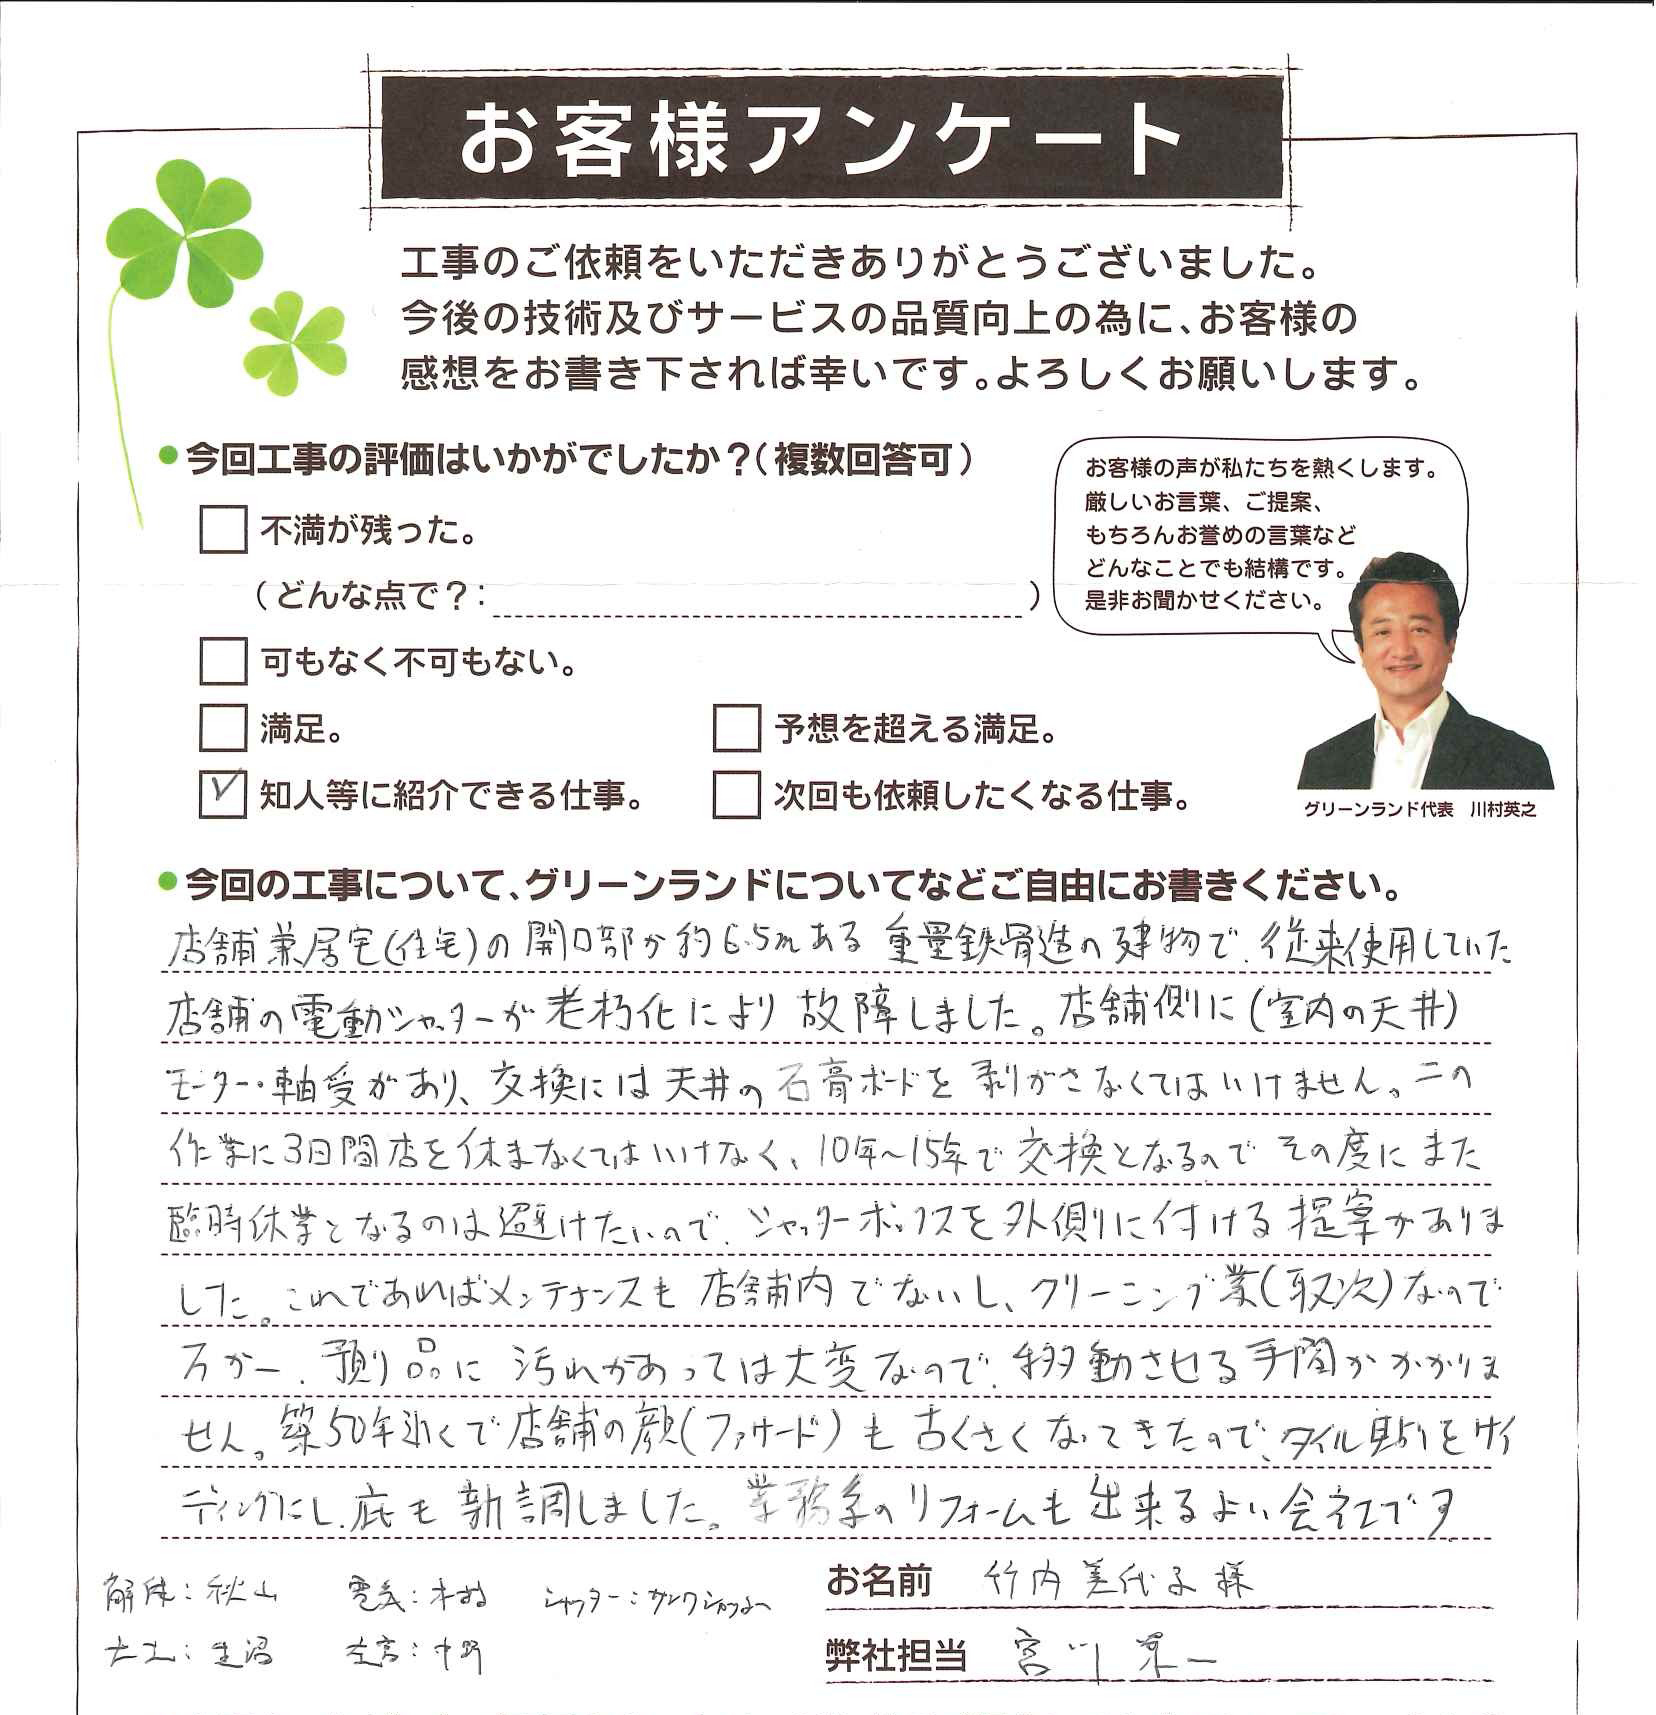 お客様アンケート
工事のご依頼をいただきありがとうございました。
今後の技術及びサービスの品質向上の為に、お客様の
感想をお書き下されば幸いです。よろしくお願いします。
●今回工事の評価はいかがでしたか？（複数回答可）
不満が残った。
（どんな点で？：）
可もなく不可もない。
満足。
予想を超える満足。
知人等に紹介できる仕事。
次回も依頼したくなる仕事。
お客様の声が私たちを熱くします。
厳しいお言葉、ご提案、
もちろんお誉めの言葉など
どんなことでも結構です。
是非お聞かせください。
グリーンランド代表　川村英之
●今回の工事について、グリーンランドについてなどご自由にお書きください。
店舗兼居宅(住宅)の開口部が約6.5mある重量鉄骨造の建物で、従来使用していた
店舗の電動シャッターが老朽化により故障しました。店舗側に(室内の天井)
モーター・軸受があり、交換には天井の石膏ボードを剥がさなくてはいけません。この
作業に3日間店を休まなくてはいけなく、10年～15年で交換となるので その度にまた
臨時休業となるのは避けたいので、シャッターボックスを外側に付ける提案がありま
した。これであればメンテナンスも店舗内でないし、クリーニング業(取次)なので
万が一、預り品に汚れがあっては大変なので、移動させる手間がかかりま
せん。築50年近くで店舗の顔(ファサード)も古くさくなってきたので、タイル貼りをサイ
ディングにし、庇も新調しました。業務系のリフォームも出来るよい会社です
解体：秋山　電気：木村　シャッター：サンワシャッター
大工：生沼　左官：中野
お名前　竹内美代子様
弊社担当　宮川栄一